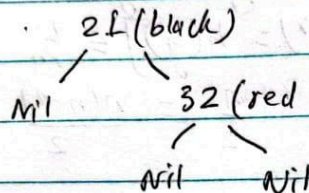 21 (black)
Nil 32 (red
Nil Nil